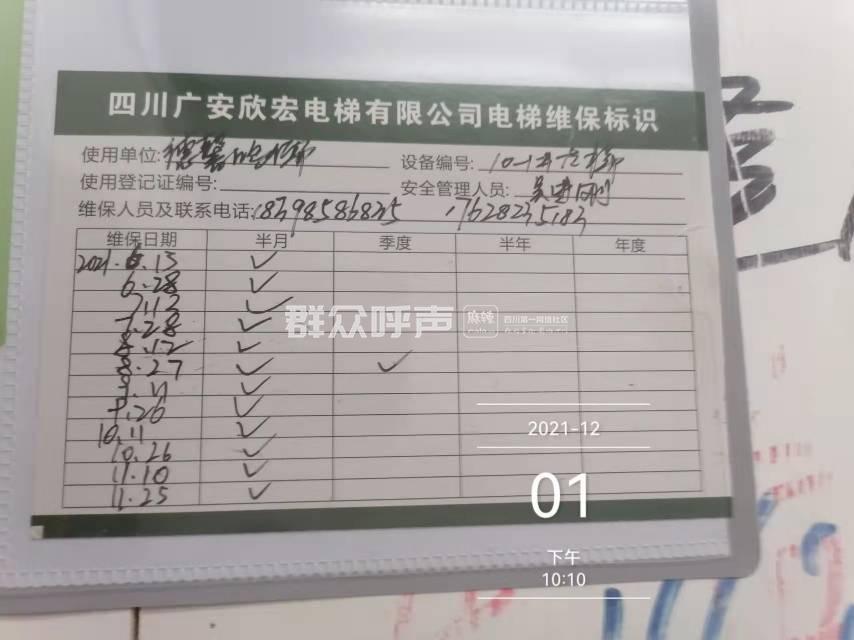 四川广安欣宏电梯有限公司电梯维保标识
使用单位: 德馨
设备编号:
使用登记证编号:
安全管理人员:
维保人员及联系电话: 18398586835 17628235183
维保日期 半月 季度 半年 年度
2021.6.13 ✓
6.28 ✓
7.12 ✓
7.28 ✓
8.12 ✓
8.27 ✓ ✓
9.11 ✓
9.26 ✓
10.11 ✓
10.26 ✓
11.10 ✓
11.25 ✓
群众呼声 麻辣 四川第一网络社区
2021-12
01
下午
10:10